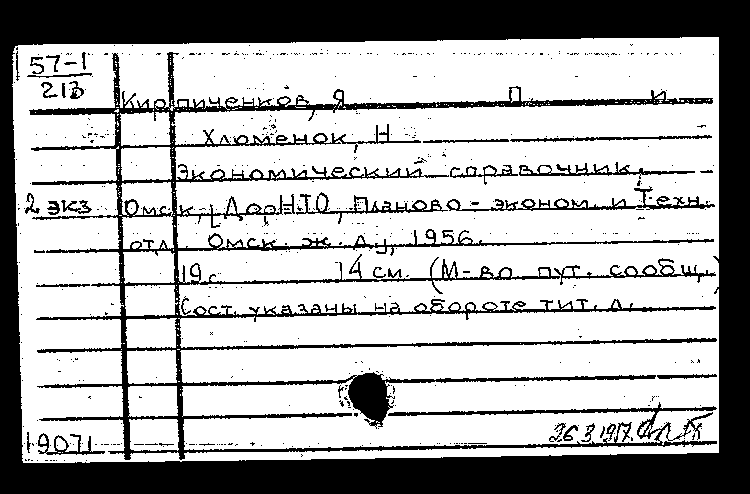 57-1
213
Кирпиченков, Я П и
Хлюменок, Н
Экономический справочник.
2 экз Омск, [ДорНТО, Планово-эконом. и Техн.
отд. Омск. ж. д.], 1956.
19 с. 14 см. (М-во пут. сообщ.)
Сост. указаны на обороте тит. л.
19071
26.3.1957.